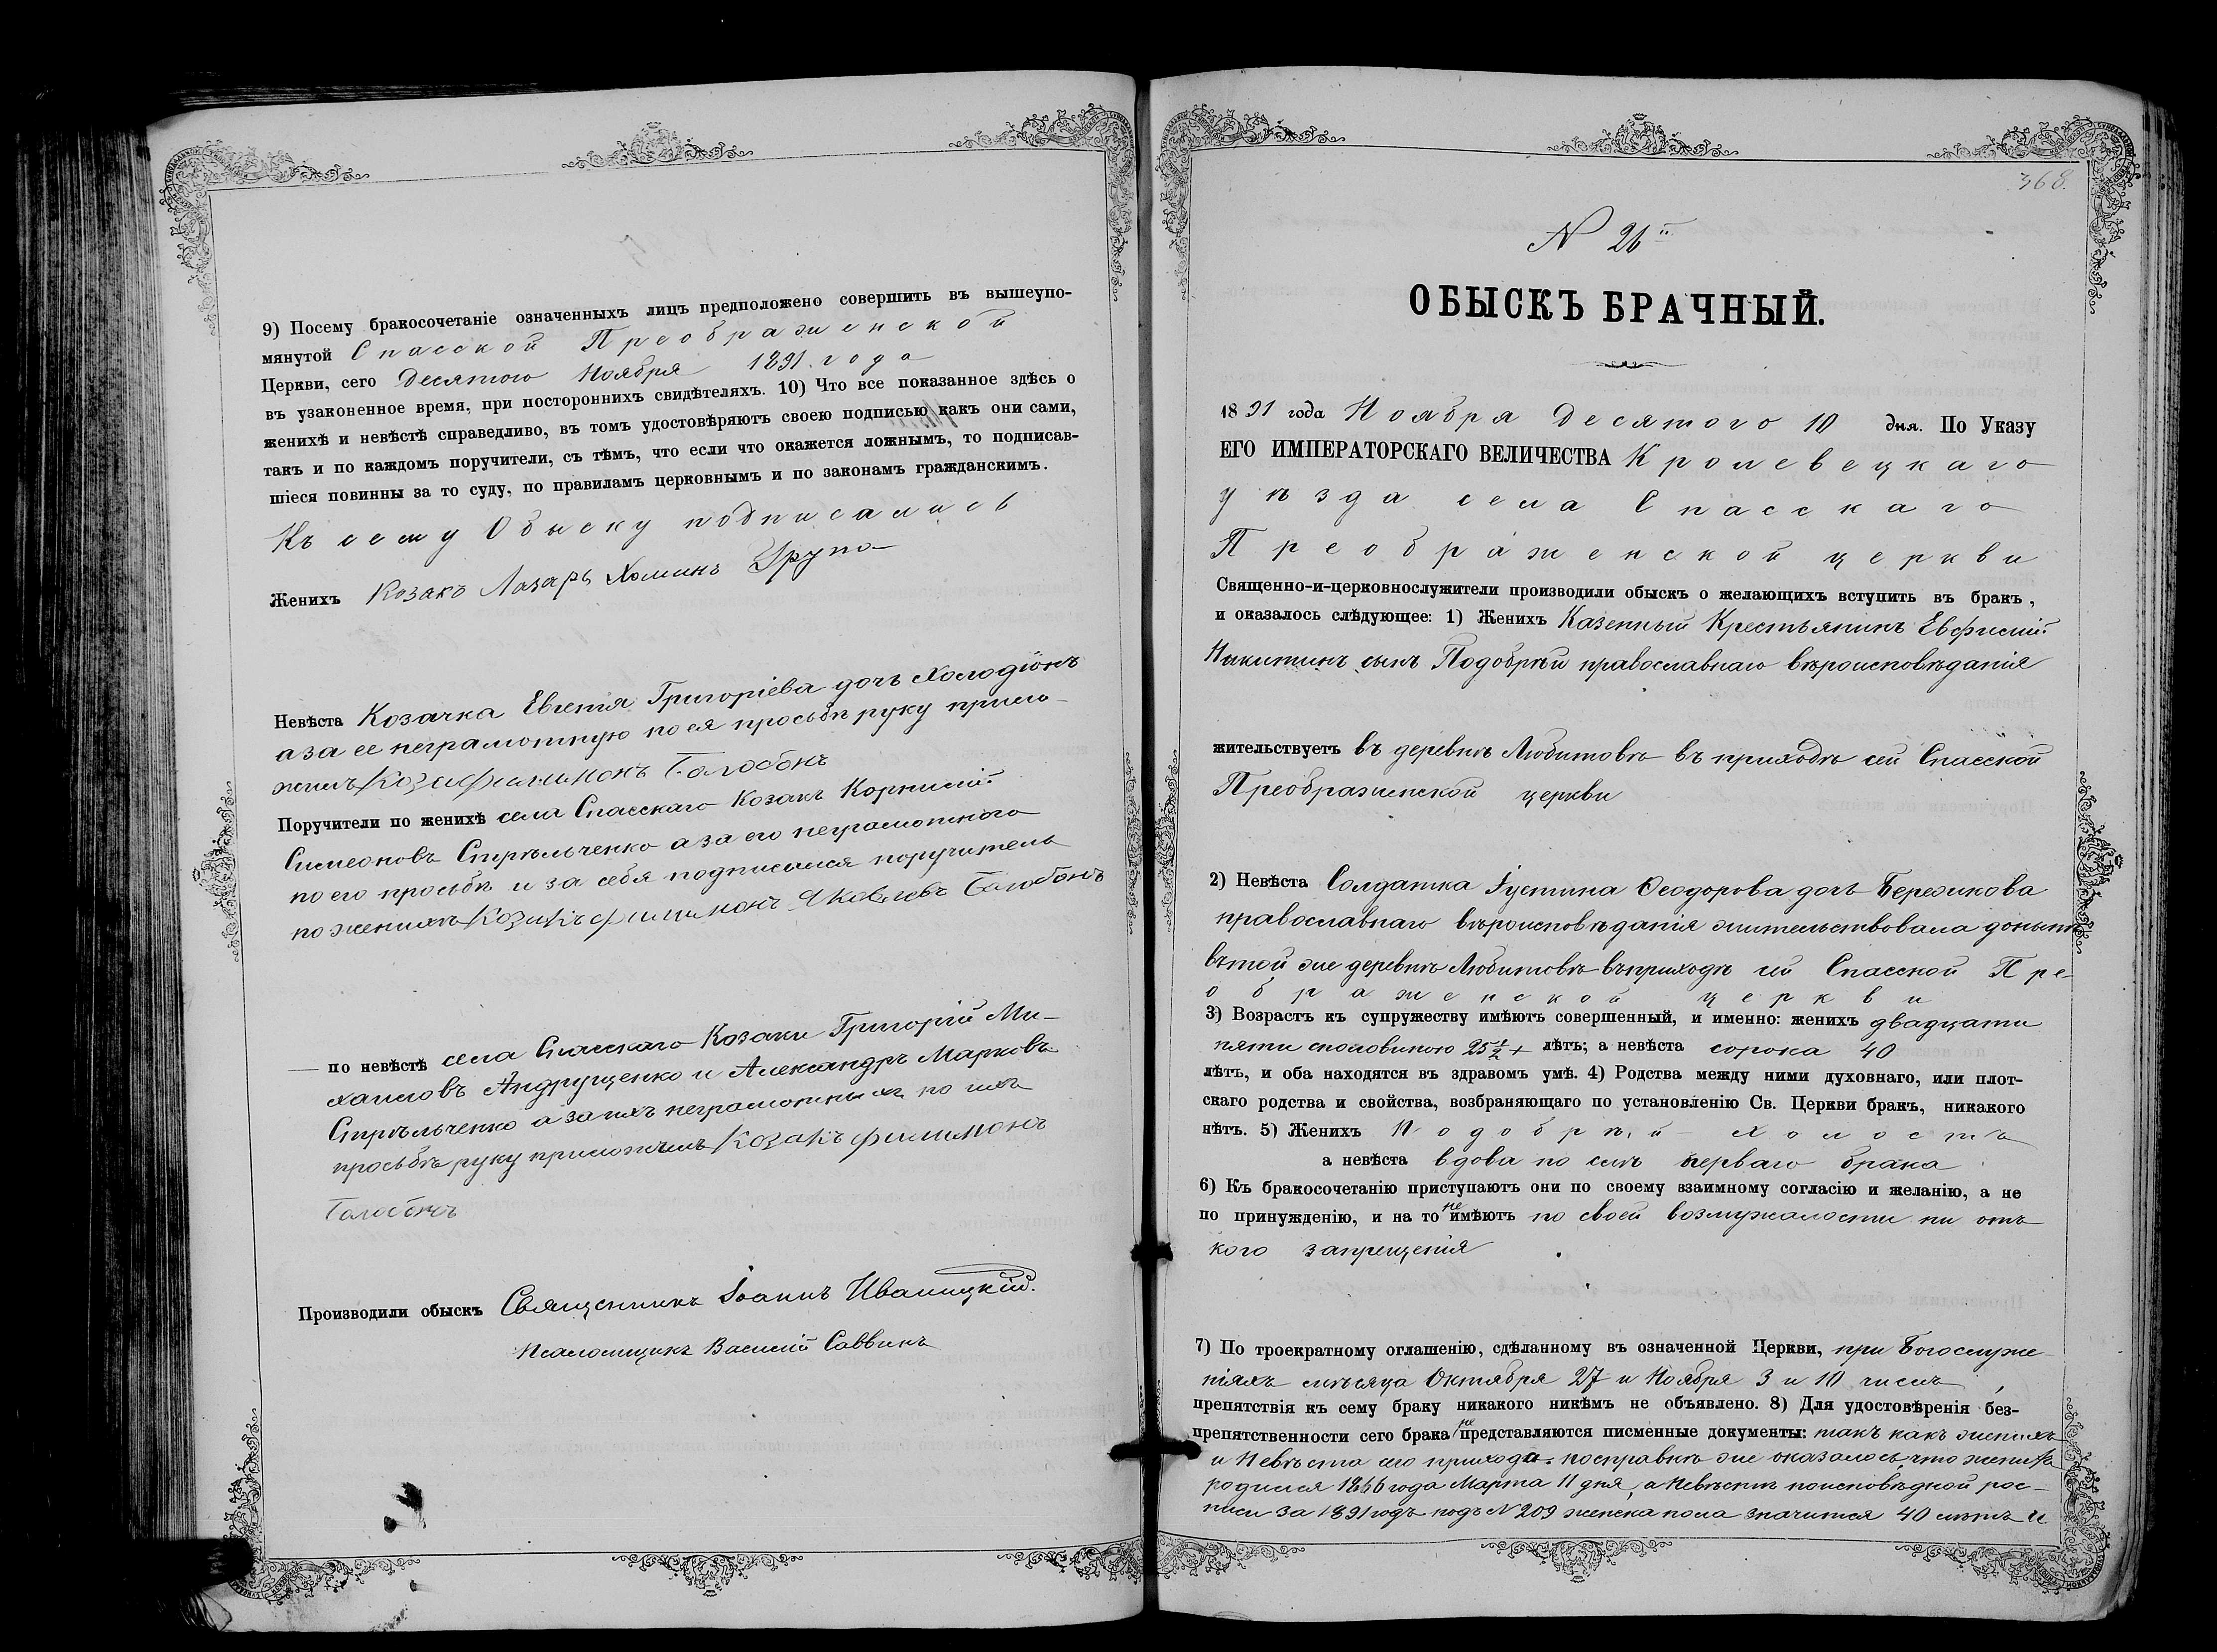 9) Посему бракосочетаніе означенныхъ лицъ предположено совершить въ вышеупо-
мянутой Спасской Преображенской
Церкви, сего Десятого Ноября 1891 года
въ узаконенное время, при постороннихъ свидѣтеляхъ. 10) Что все показанное здѣсь о
женихѣ и невѣстѣ справедливо, въ томъ удостовѣряютъ своею подписью какъ они сами,
такъ и по каждомъ поручители, съ тѣмъ, что если что окажется ложнымъ, то подписав-
шіеся повинны за то суду, по правиламъ церковнымъ и по законамъ гражданскимъ.
Къ сему Обыску подписались
Женихъ Козакъ Лазарь Хоминъ
Невѣста Козачка Евгенія Григоріева дочь Холодіонъ
а за ее неграмотную по ея просьбѣ руку прило-
жилъ Филимонъ Голобонъ
Поручители по женихѣ села Спасскаго Козакъ Корнилій
Симеоновъ Стрѣльченко а за его неграмотного
по его просьбѣ и за себя подписался поручитель
по женихѣ Козакъ Филимонъ Яковлевъ Голобонъ
по невѣстѣ села Спасскаго Козаки Григорій Ми-
хаиловъ Андрущенко и Александръ Марковъ
Стрѣльченко а за ихъ неграмотныхъ по ихъ
просьбѣ руку приложилъ Козакъ Филимонъ
Голобонъ
Производили обыскъ Священникъ Іоаннъ Иваницкій.
Псаломщикъ Василій Саввинъ
368.
N 26й
ОБЫСКЪ БРАЧНЫЙ.
1891 года Ноября Десятого 10 дня. По Указу
ЕГО ИМПЕРАТОРСКАГО ВЕЛИЧЕСТВА Кролевецкаго
уѣзда села Спасскаго
Преображенской церкви
Священно-и-церковнослужители производили обыскъ о желающихъ вступить въ бракъ,
и оказалось слѣдующее: 1) Женихъ Казенный Крестьянинъ Евфисій
Никитинъ сынъ Подобрѣй православнаго вѣроисповѣданія
жительствуетъ въ деревнѣ Любитовѣ въ приходѣ сей Спасской
Преображенской церкви
2) Невѣста Солдатка Іустина Ѳеодорова дочь Березикова
православнаго вѣроисповѣданія жительствовала донынѣ
вътой же деревнѣ Любитовѣ въприходѣ сей Спасской Пре-
ображенской церкви
3) Возрастъ къ супружеству имѣютъ совершенный, и именно: женихъ двадцати
пяти споловиною 25½ + лѣтъ; а невѣста сорока 40
лѣтъ, и оба находятся въ здравомъ умѣ. 4) Родства между ними духовнаго, или плот-
скаго родства и свойства, возбраняющаго по установленію Св. Церкви бракъ, никакого
нѣтъ. 5) Женихъ Подобрѣй холостъ
а невѣста вдова по семъ перваго брака
6) Къ бракосочетанію приступаютъ они по своему взаимному согласію и желанію, а не
по принужденію, и на то не имѣютъ по своей возмужалости ни отъ
кого запрещенія
7) По троекратному оглашенію, сдѣланному въ означенной Церкви, при Богослуже-
ніяхъ мѣсяца Октября 27 и Ноября 3 и 10 чиселъ,
препятствія къ сему браку никакого никѣмъ не объявлено. 8) Для удостовѣренія без-
препятственности сего брака не представляются писменные документы: такъ какъ женихъ
и Невѣста сего прихода. посправкѣ же оказалось, что женихъ
родился 1866 года Марта 11 дня, а Невѣстѣ поисповѣдной рос-
писи за 1891 годъ подъ N 209 женска пола значится 40 лѣтъ и